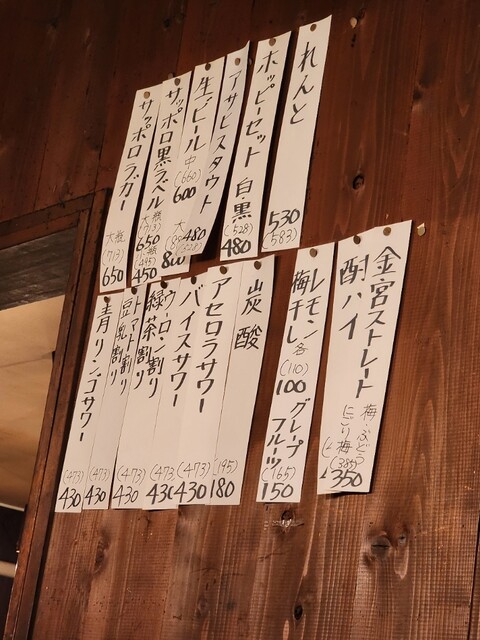 れんと
530
(583)
ホッピーセット 白・黒
(528)
480
アサヒスタウト
480
生ビール
中
(660)
600
大
800
サッポロ黒ラベル
大瓶
(713)
650
(495)
450
サッポロラガー
大瓶
(713)
650
金宮ストレート
酎ハイ
梅・ぶどう
にごり梅
(385)
350
レモン
梅干し
各
(110)
100
グレープ
フルーツ
(165)
150
炭酸
(195)
180
アセロラサワー
バイスサワー
(473)
430
ウーロン割り
緑茶割り
(473)
430
トマト割り
豆乳割り
(473)
430
(473)
430
青リンゴサワー
(473)
430